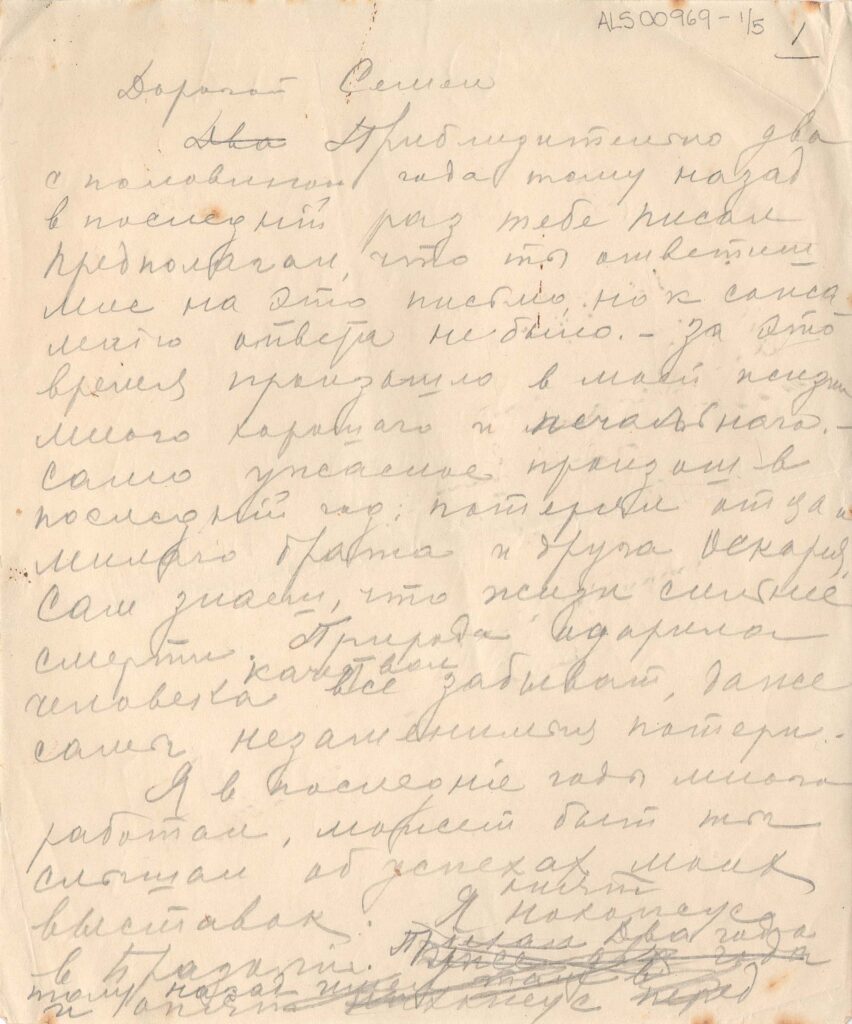 ALS00969-1/5
1
Дорогой Семен
Два Приблизительно два
с половиной года тому назад
в последний раз тебе писал
предполагал, что ты ответишь
мне на это письмо, но к сожа
лению ответа не было. – За это
время произошло в моей жизни
много хорошаго и печальнаго. –
само ужасное произош в
последний год: потерял отца и
милаго брата и друга Оскара,
Сам знаеш, что жизн силнее
смерти. Природа одарила
человека качеством все забыват, даже
самыя незаменимыя потери. –
Я в последние годы много
работал, может быт ты
слышал об успехах моих
выставок. Я опят нахожус
в Бразилии. Приехал два года
тому назад
и опят нахожус перед